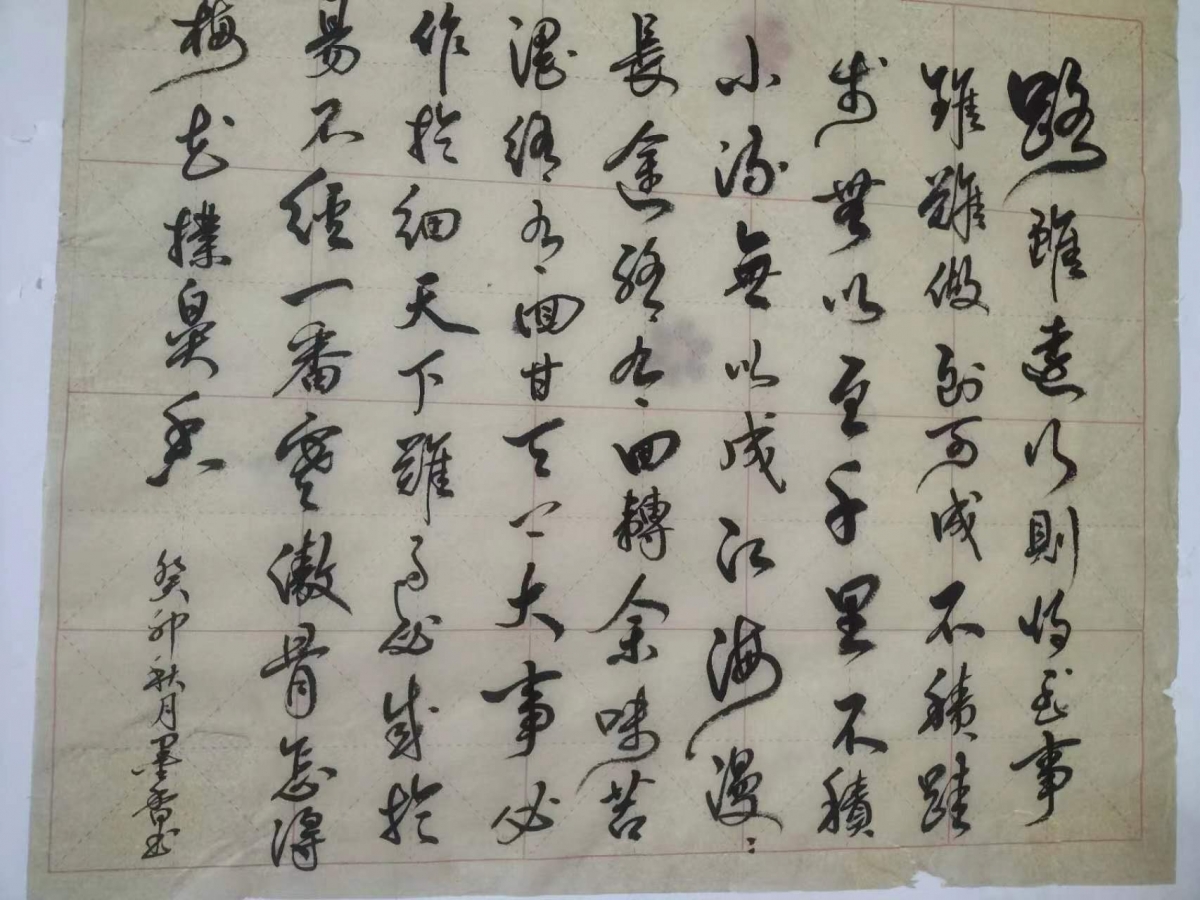 路雖遠行則將至事
雖難做則可成不積跬
步無以至千里不積
小流無以成江海漫〻
長途終有回轉余味苦
澀終有回甘天下大事必
作於細天下難事必成於
易不經一番寒傲骨怎得
梅花撲鼻香
癸卯秋月墨香書